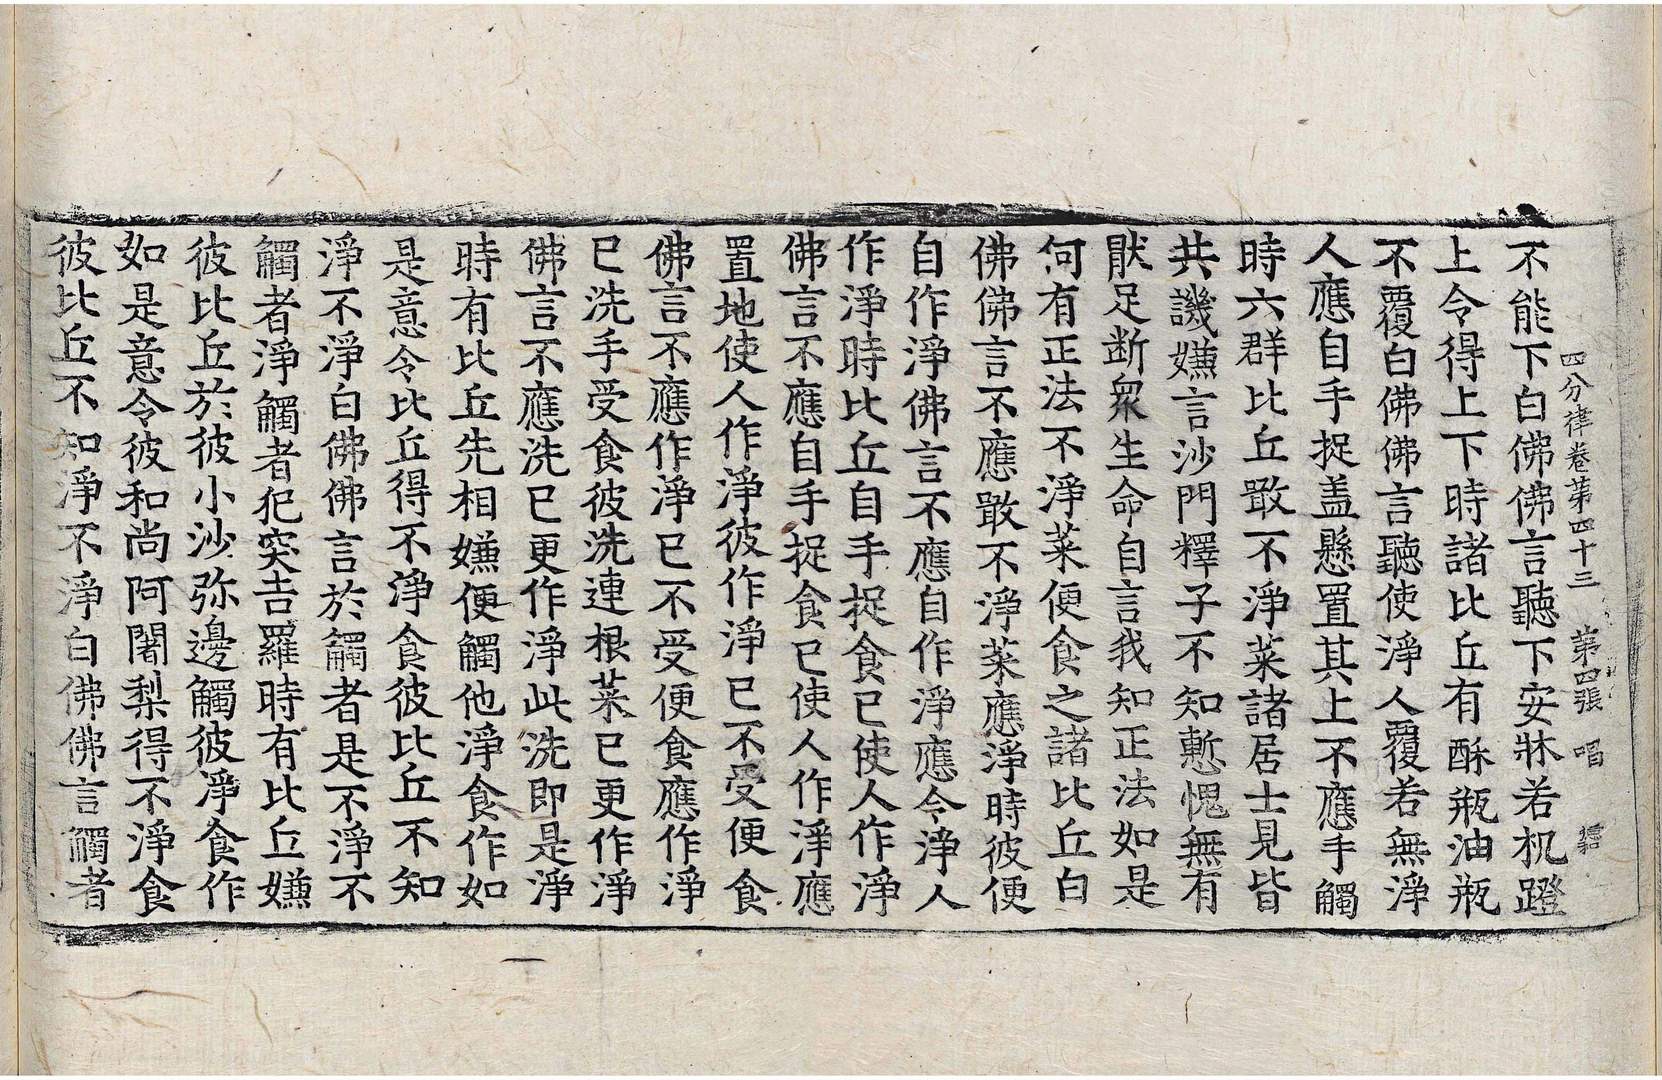 四分律卷第四十三 第四張 唱
不能下白佛佛言聽下安牀若机蹬
上令得上下時諸比丘有酥瓶油瓶
不覆白佛佛言聽使淨人覆若無淨
人應自手捉盖懸置其上不應手觸
時六群比丘噉不淨菜諸居士見皆
共譏嫌言沙門釋子不知慙愧無有
猒足断衆生命自言我知正法如是
何有正法不淨菜便食之諸比丘白
佛佛言不應噉不淨菜應淨時彼便
自作淨佛言不應自作淨應令淨人
作淨時比丘自手捉食已使人作淨
佛言不應自手捉食已使人作淨應
置地使人作淨彼作淨已不受便食
佛言不應作淨已不受便食應作淨
已洗手受食彼洗連根菜已更作淨
佛言不應洗已更作淨此洗即是淨
時有比丘先相嫌便觸他淨食作如
是意令比丘得不淨食彼比丘不知
淨不淨白佛佛言於觸者是不淨不
觸者淨觸者犯突吉羅時有比丘嫌
彼比丘於彼小沙弥邊觸彼淨食作
如是意令彼和尚阿闍梨得不淨食
彼比丘不知淨不淨白佛佛言觸者